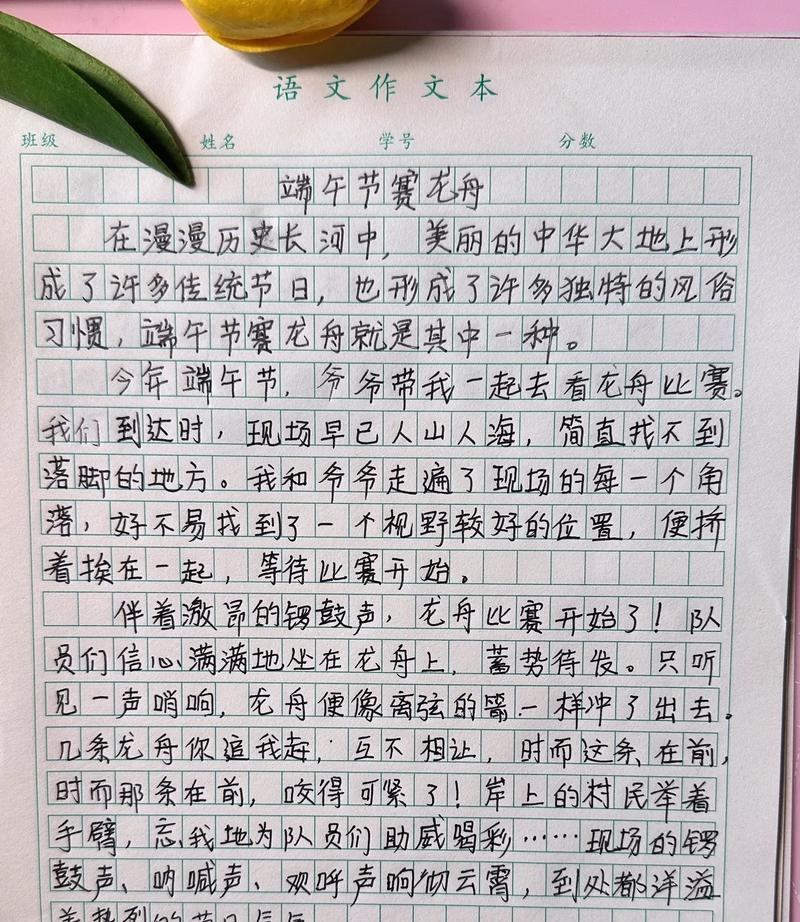 语文作文本
班级 姓名 学号 分数
端午节赛龙舟
在漫漫历史长河中，美丽的中华大地上形
成了许多传统节日，也形成了许多独特的风俗
习惯，端午节赛龙舟就是其中一种。
今年端午节，爷爷带我一起去看龙舟比赛。
我们到达时，现场早已人山人海，简直找不到
落脚的地方。我和爷爷走遍了现场的每一个角
落，好不易找到了一个视野较好的位置，便挤
着挨在一起，等待比赛开始。
伴着激昂的锣鼓声，龙舟比赛开始了！队
员们信心满满地坐在龙舟上，蓄势待发。只听
见一声哨响，龙舟便像离弦的箭一样冲了出去。
几条龙舟你追我赶，互不相让，时而这条在前，
时而那条在前，咬得可紧了！岸上的村民举着
手臂，忘我地为队员们助威喝彩……现场的锣
鼓声、呐喊声、欢呼声响彻云霄，到处都洋溢
着热烈的节日气氛